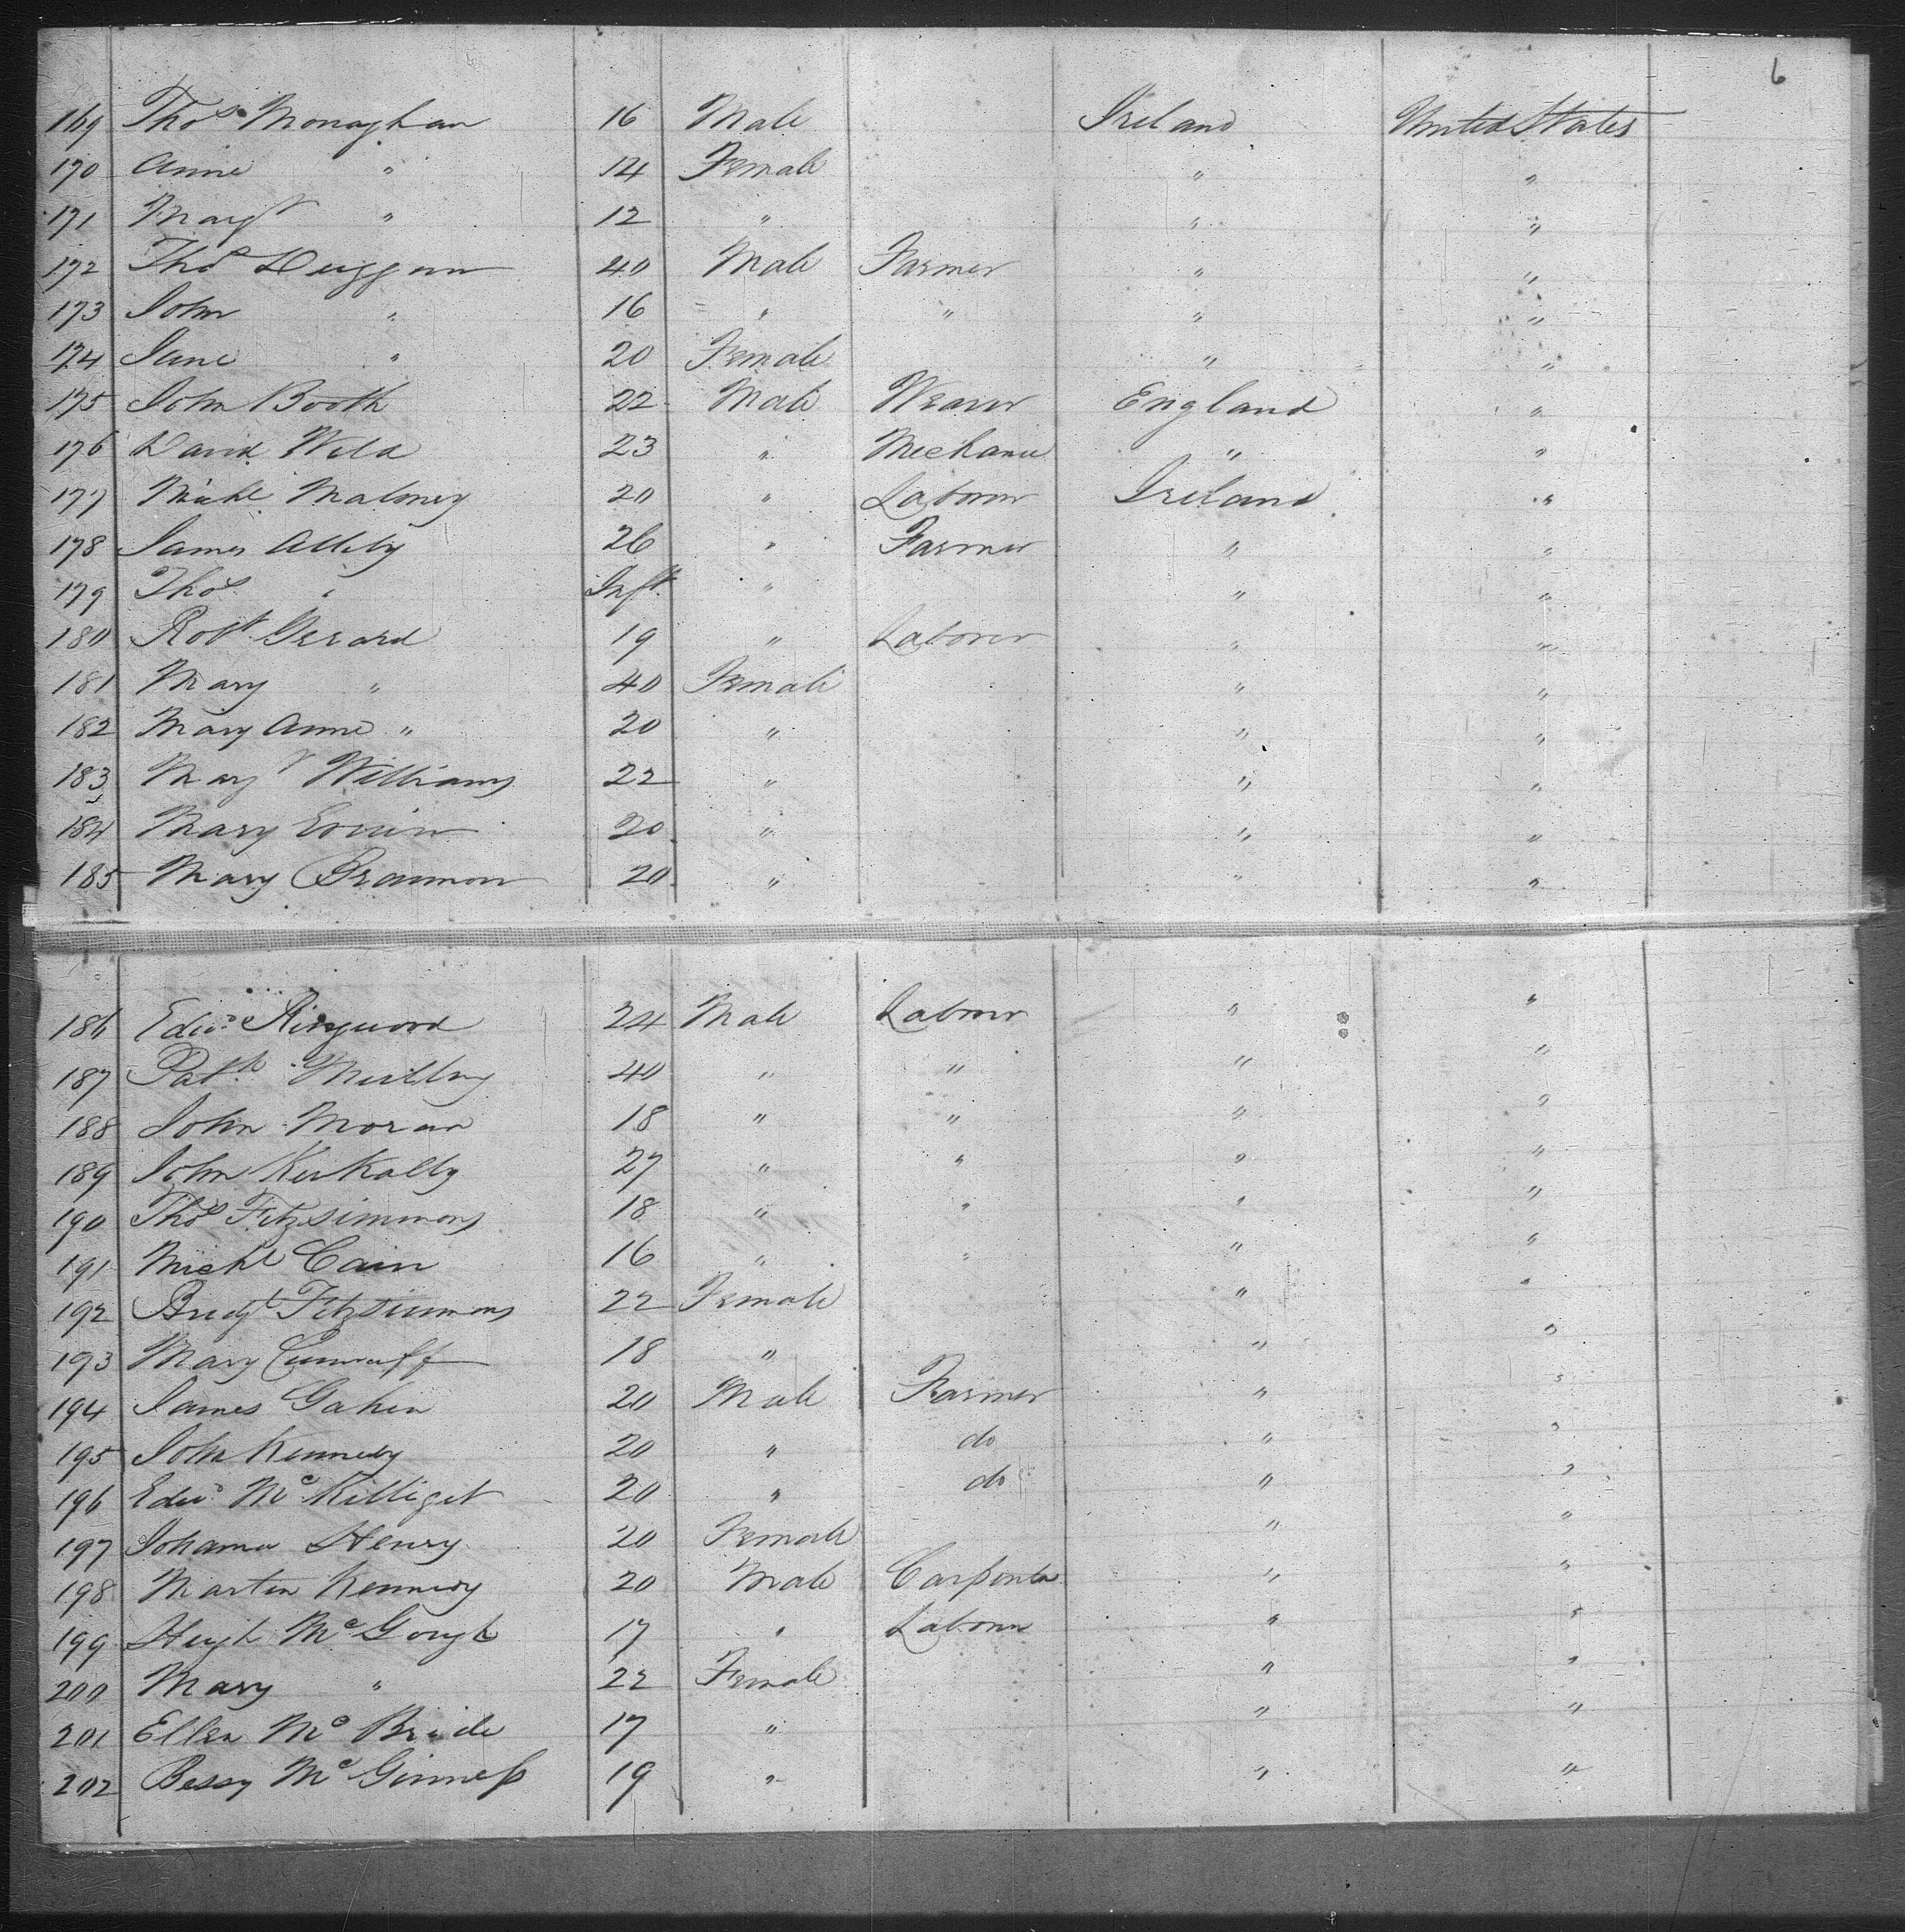 6
169 Thos Monaghan 16 Male Ireland United States
170 Anne " 14 Female " "
171 Margt " 12 " " "
172 Thos Duggan 40 Male Farmer " "
173 John " 16 " " " "
174 Jane " 20 Female " "
175 John Booth 22 Male Weaver England "
176 David Wild 23 " Mechanic " "
177 Michl Maloney 20 " Laborer Ireland "
178 James 26 " Farmer " "
179 Thos " Inft. " " "
180 Robt Gerard 19 " Laborer " "
181 Mary " 40 Female " "
182 Mary Anne " 20 " " "
183 Margt Williams 22 " " "
184 Mary 20 " " "
185 Mary Brannon 20 " " "
186 Edwd Ringwood 24 Male Laborer " "
187 Patk 40 " " " "
188 John Moran 18 " " " "
189 John 27 " " " "
190 Thos Fitzsimmons 18 " " " "
191 Michl Cain 16 " " " "
192 Bridgt Fitzsimmons 22 Female " "
193 Mary 18 " " "
194 James Gahen 20 Male Farmer " "
195 John Kennedy 20 " do " "
196 Edwd Mc Killiget 20 " do " "
197 Johanna Henry 20 Female " "
198 Martin Kennedy 20 Male Carpenter " "
199 Hugh Mc Gough 17 " Laborer " "
200 Mary " 22 Female " "
201 Ellen Mc Bride 17 " " "
202 Bessy Mc Ginness 19 " " "